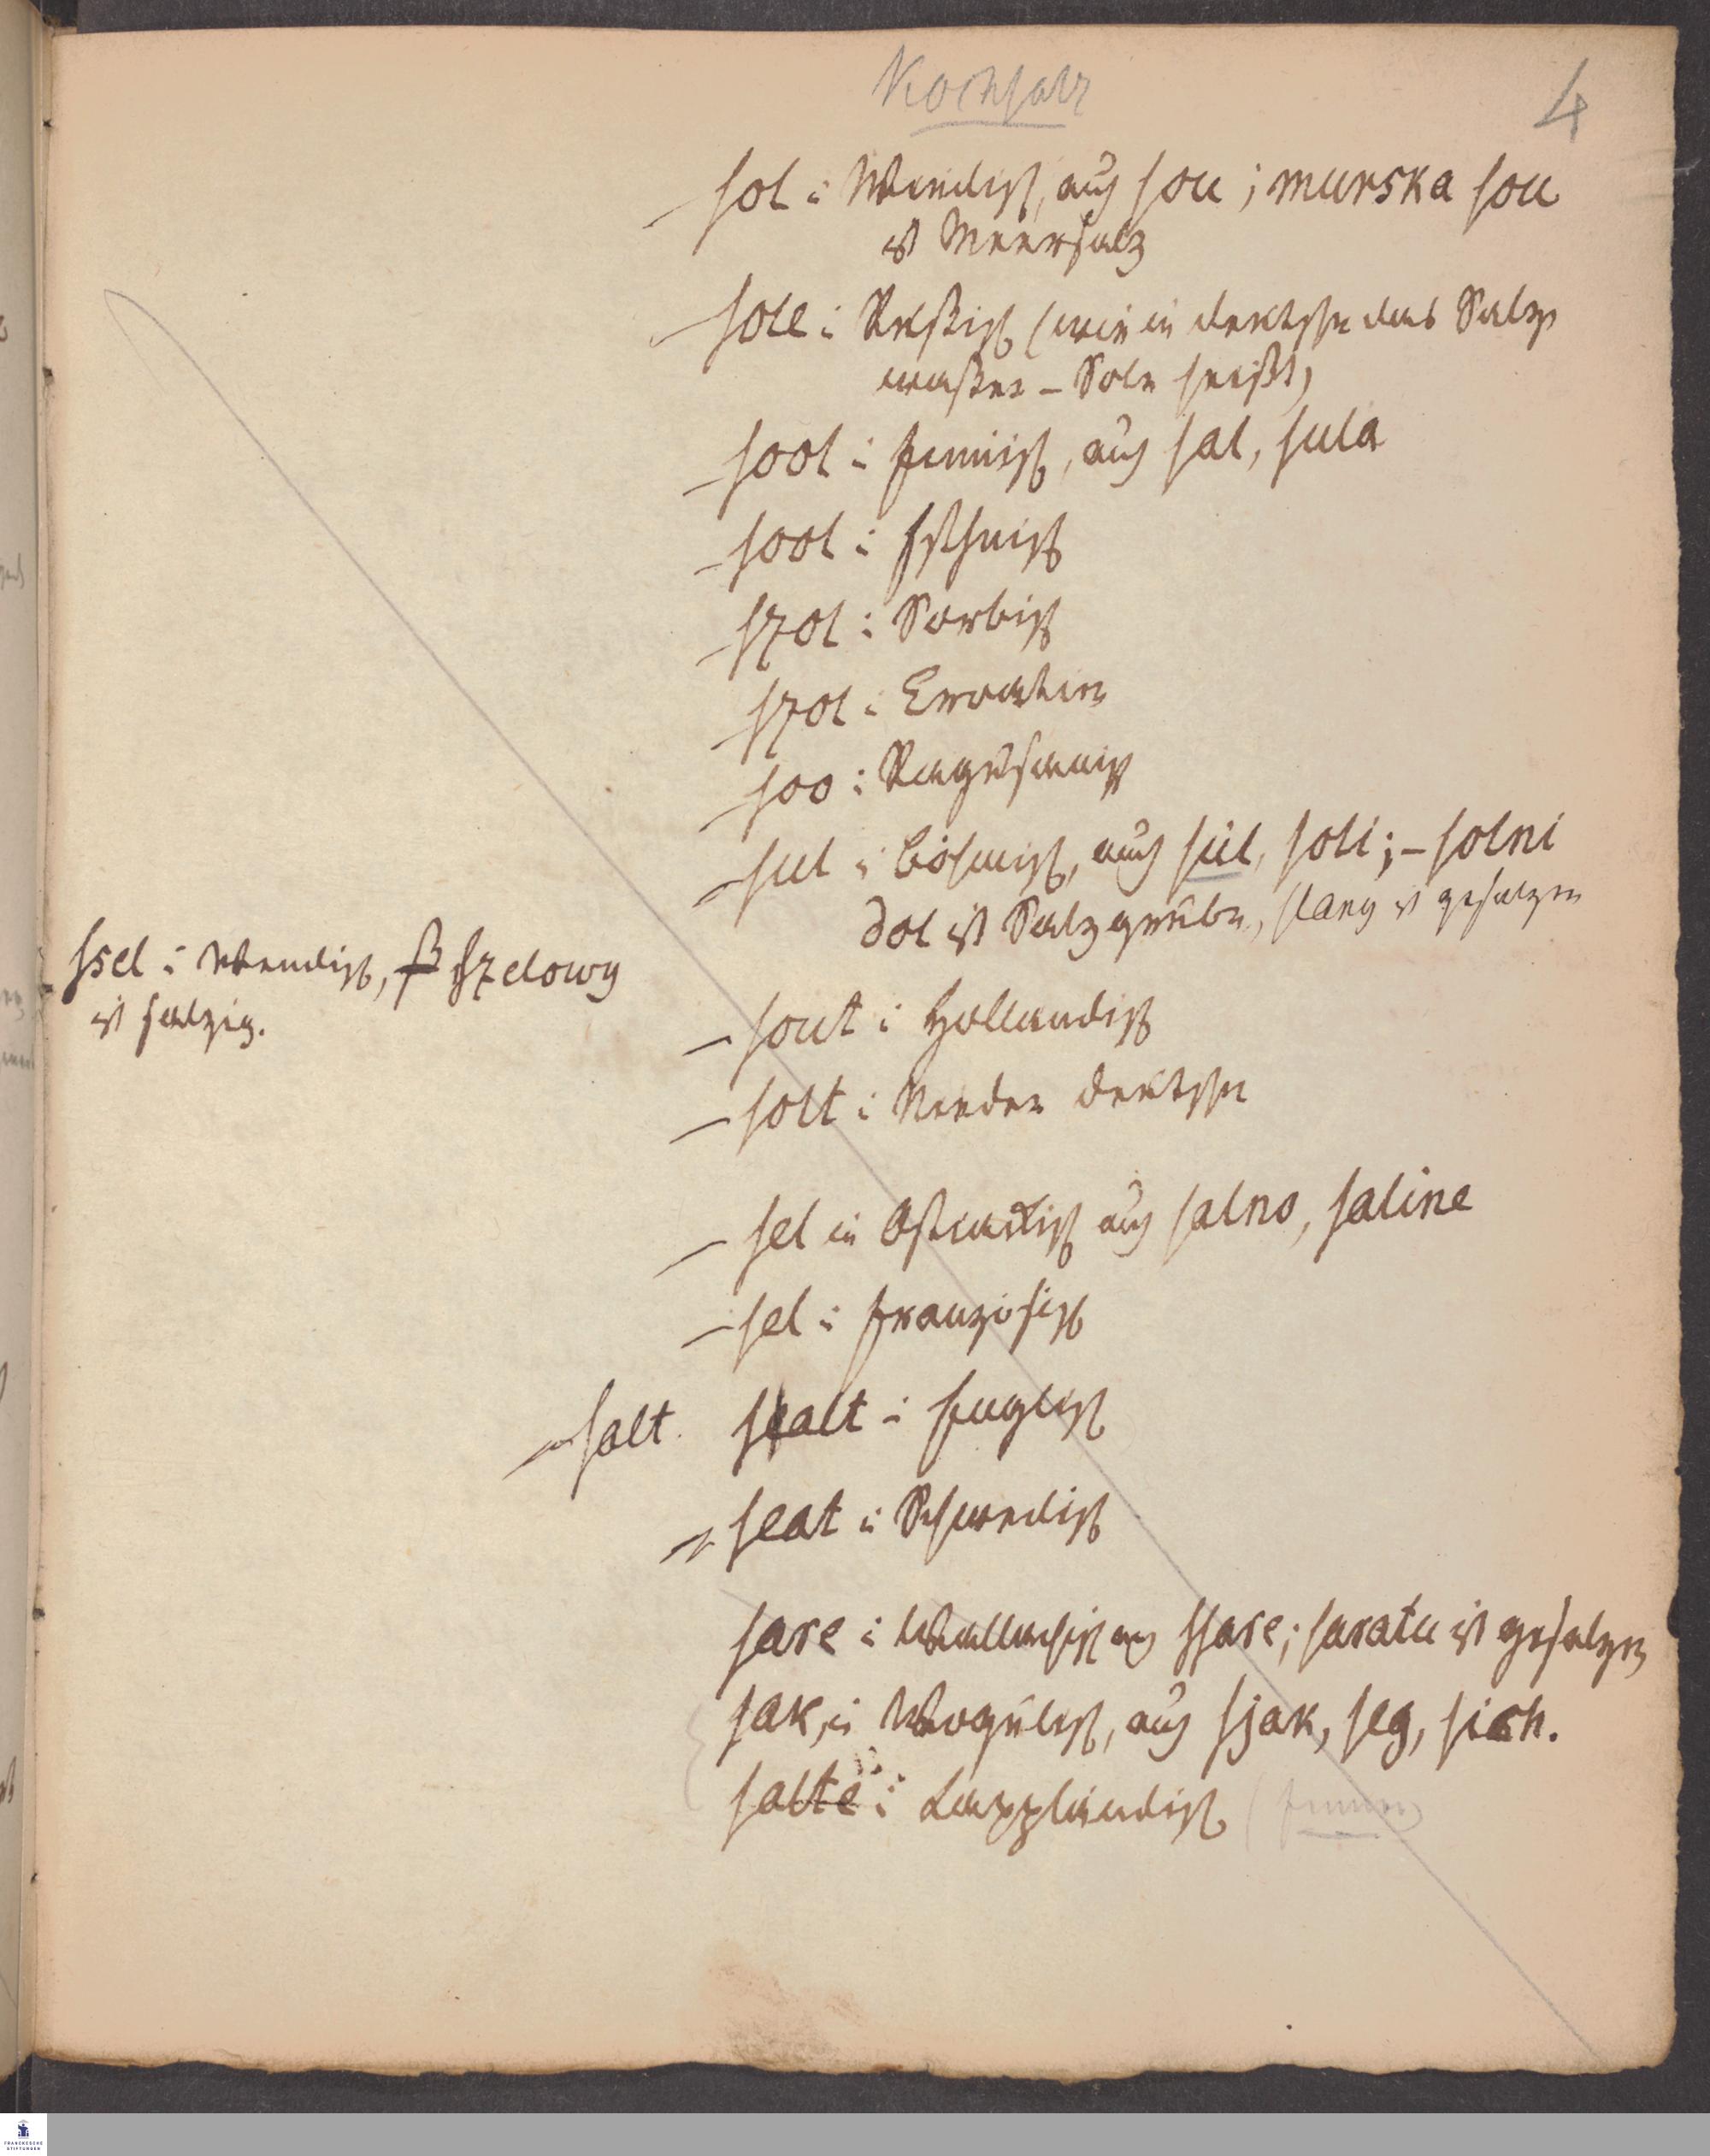 Kochsalz
4
sol i Wendisch, auch sou; murska sou
ist Meersalz
sole i Rußisch (wie im deutschen das Salz
waßer – Sole heißt)
sool i finnisch, auch sal, sula
sool i Esthnisch
szol i Sorbisch
szol i Croatien
soo i Ragusanisch
sul i böhmisch, auch sül, soli; – solni
dol ist Salzgrube, slany ist gesalzen
ssel i Wendisch, szelowy
ist salzig.
sout i Holländisch
solt i Nieder deutschen
sel in auch salno, saline
sel i französisch
salt. sealt i Englisch
seat i Schwedisch
sare i Wallachisch auch ssare; saratu ist gesalzen
sak, i Wogulisch, auch sjak, seg, sich.
salte i Lappländisch (finnen)
FRANCKESCHE STIFTUNGEN